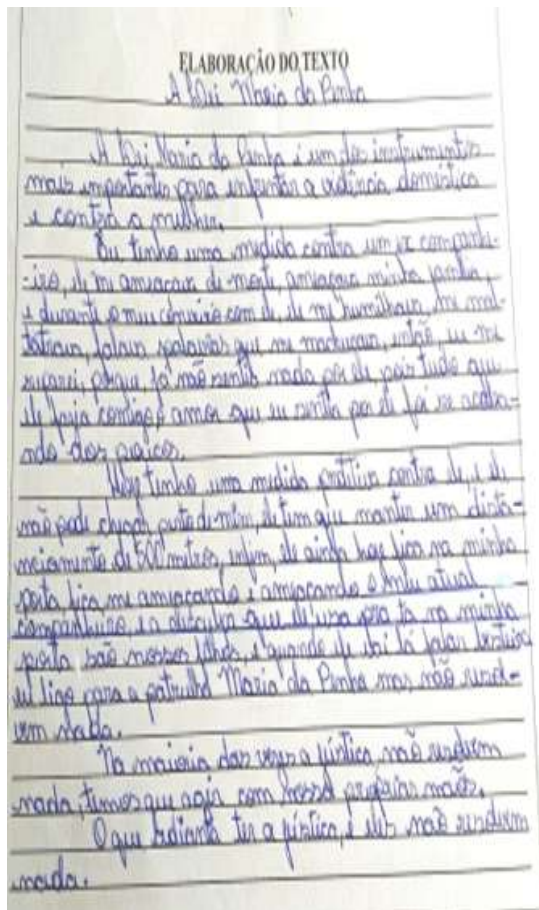 ELABORAÇÃO DO TEXTO
A Lei Maria da Penha
A Lei Maria da Penha é um dos instrumentos
mais importantes para enfrentar a violência doméstica
e contra a mulher.
Eu tenho uma medida contra um ex companhe-
-iro, ele me ameaçava de morte, ameaçava minha família,
e durante o meu convívio com ele, ele me humilhava, me mal-
tratava, falava palavras que me machucava, então, eu me
separei, porque, já não sentia nada por ele, pois tudo que
ele fazia comigo, o amor que eu sentia por ele foi se acaba-
ndo aos poucos.
Hoje tenho uma medida protetiva contra ele, e ele
não pode chegar perto de mim, ele tem que manter um dista-
nciamento de 500 metros, enfim, ele ainda hoje fica na minha
porta fica me ameaçando e ameaçando o meu atual
companheiro, e a desculpa que ele usa pra tá na minha
porta são nossos filhos, e quando ele vai lá falar besteira
eu ligo para a patrulha Maria da Penha mas não resol-
vem nada.
Na maioria das vezes a justiça, não resolvem
nada, temos que agir com nossa próprias mãos.
O que adianta ter a justiça, e eles não resolvem
nada.